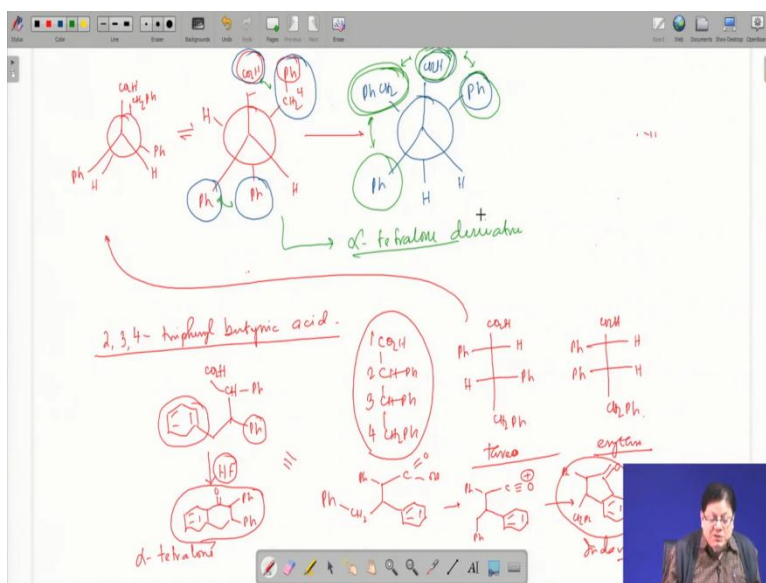 Stylus
Color
Line
Eraser
Backgrounds
Undo
Redo
Pages
Previous
Next
Erase
Web
Documents
Show Desktop
OpenBoard
CO2H
CH2Ph
Ph
H
H
Ph
CO2H
Ph
CH2 4
H
Ph
Ph
H
CO2H
PhCH2
Ph
Ph
H
H
α-tetralone derivative
2,3,4-triphenyl butyric acid.
CO2H
CH-Ph
Ph
HF
O
Ph
Ph
α-tetralone
1 CO2H
2 CH-Ph
3 CH-Ph
4 CH2Ph
CO2H
Ph
H
H
Ph
CH2Ph
threo
CO2H
Ph
H
Ph
H
CH2Ph.
erythro
Ph
C
O
OH
Ph-CH2
Ph
C≡O
+
Ph
Ph
O
CH2Ph